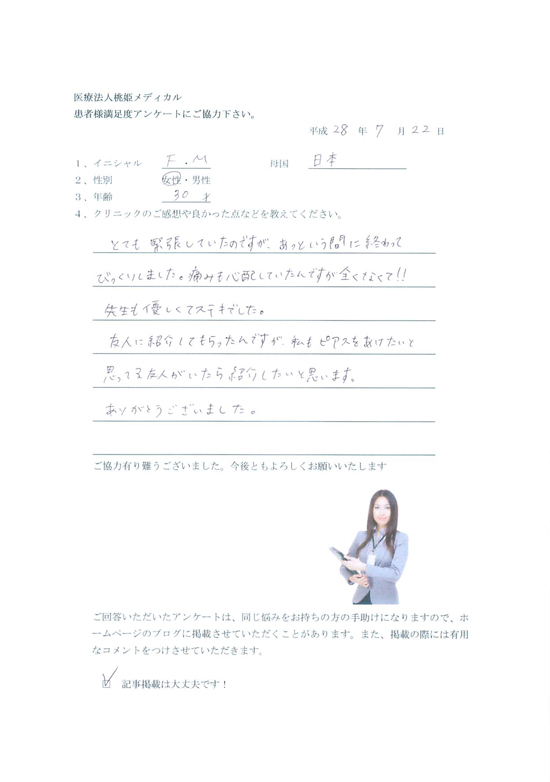 医療法人桃姫メディカル
患者様満足度アンケートにご協力下さい。
平成 28 年 7 月 22 日
1、イニシャル F.M 母国 日本
2、性別 女性・男性
3、年齢 30 才
4、クリニックのご感想や良かった点などを教えてください。
とても緊張していたのですが、あっという間に終わって
びっくりしました。痛みも心配していたんですが全くなくて!!
先生も優しくてステキでした。
友人に紹介してもらったんですが、私もピアスをあけたいと
思ってる友人がいたら紹介したいと思います。
ありがとうございました。
ご協力有り難うございました。今後ともよろしくお願いいたします
ご回答いただいたアンケートは、同じ悩みをお持ちの方の手助けになりますので、ホ
ームページのブログに掲載させていただくことがあります。また、掲載の際には有用
なコメントをつけさせていただきます。
☑ 記事掲載は大丈夫です！